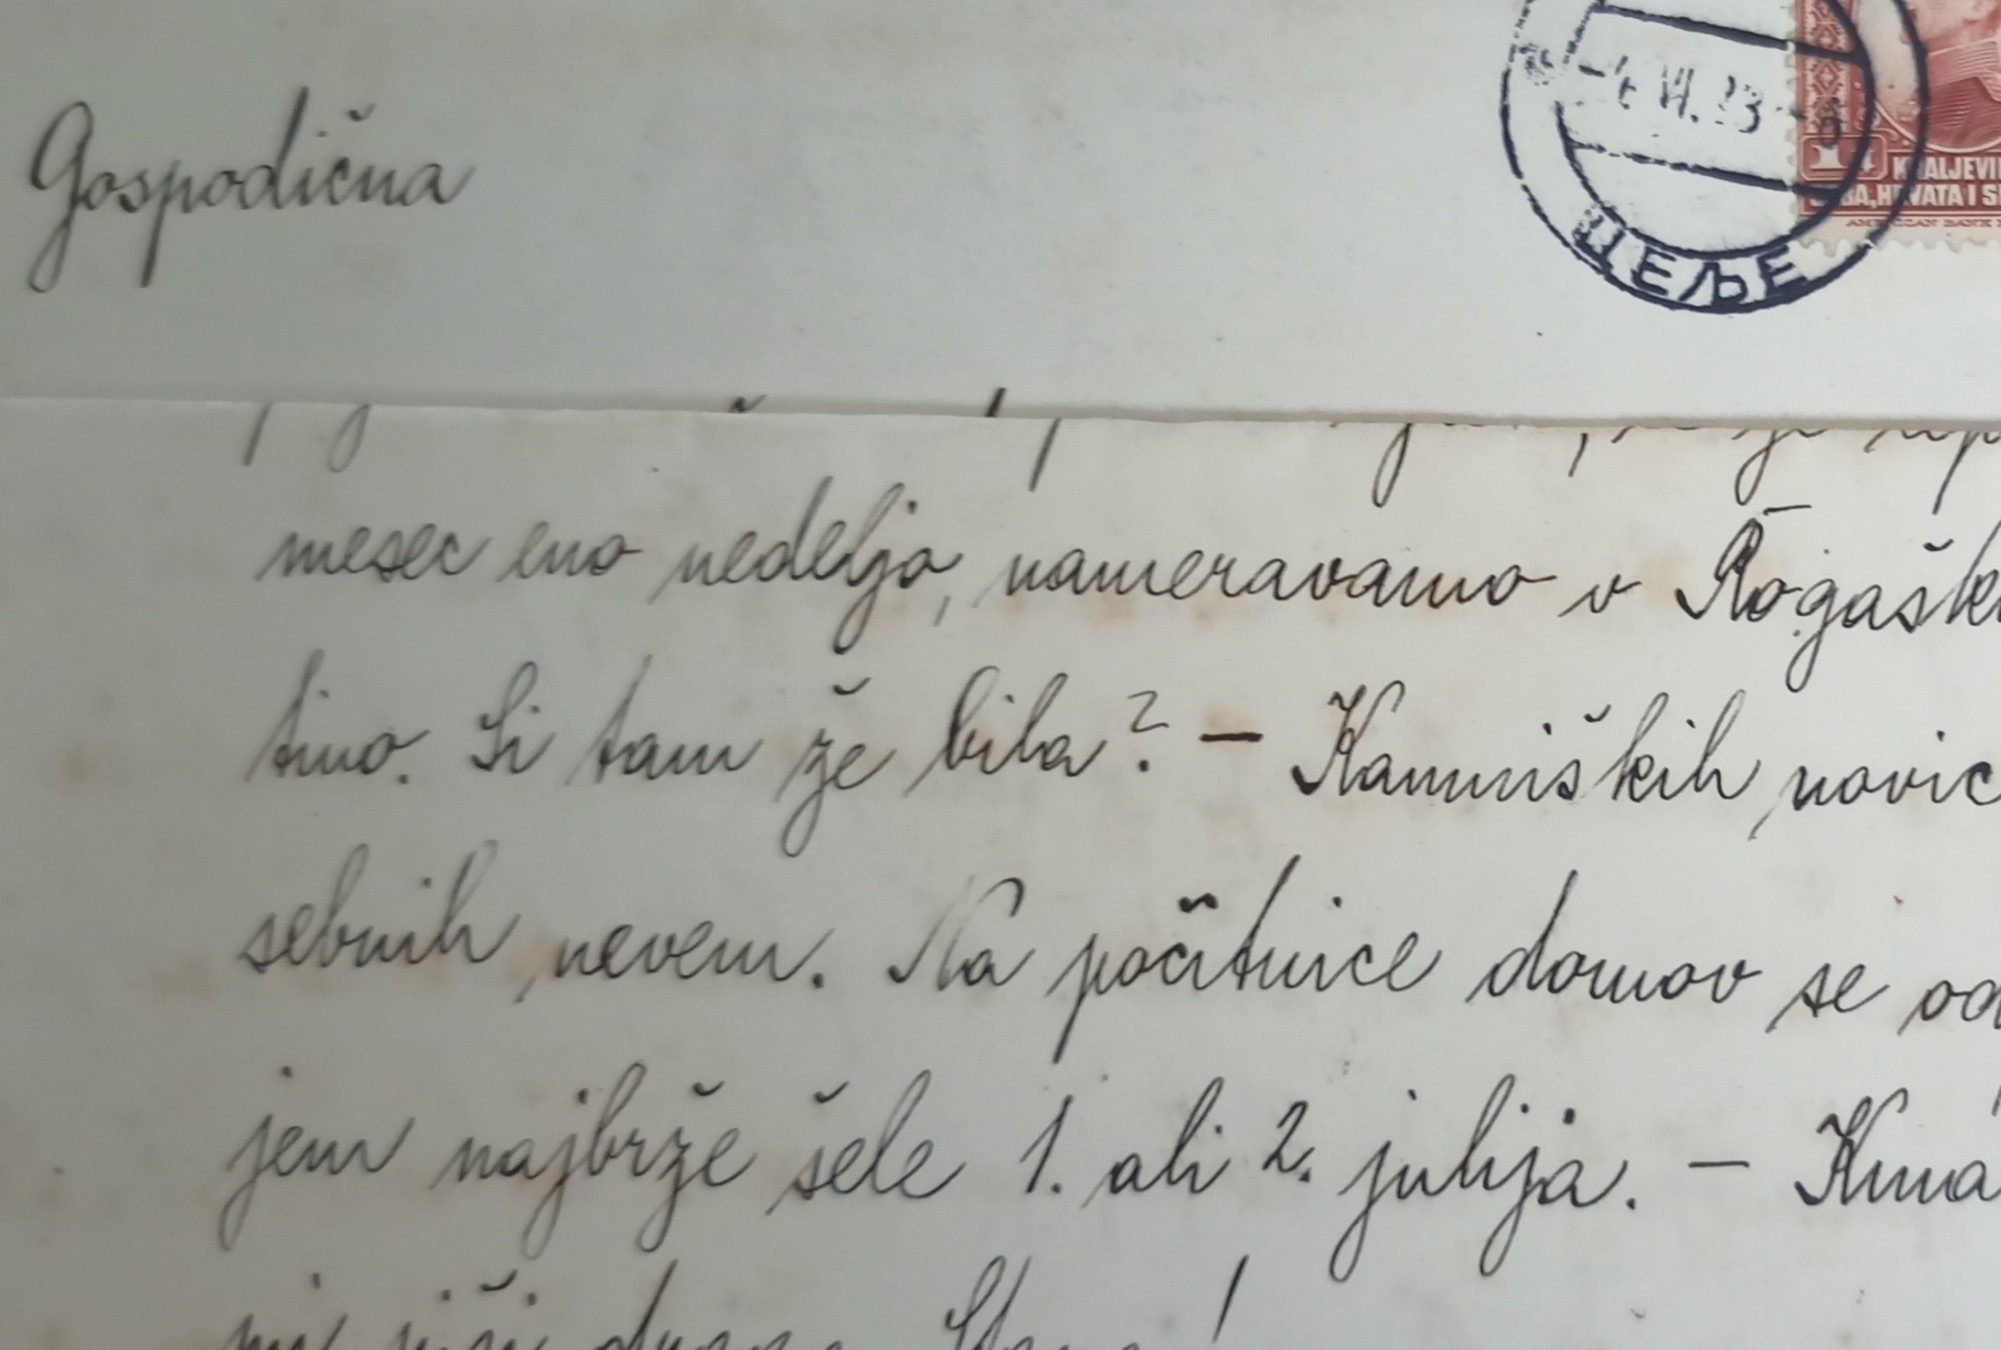 Gospodična
-4 VI. 23
ЦЕЉЕ
1
KRALJEVI
SRBA, HRVATA I S
AMERICAN BANK
mesec eno nedeljo, nameravamo v Rogašk
tino. Si tam že bila? – Kamniških novic
sebnih nevem. Na počitnice domov se od
jem najbrže šele 1. ali 2. julija. – Kma
mi piši draga